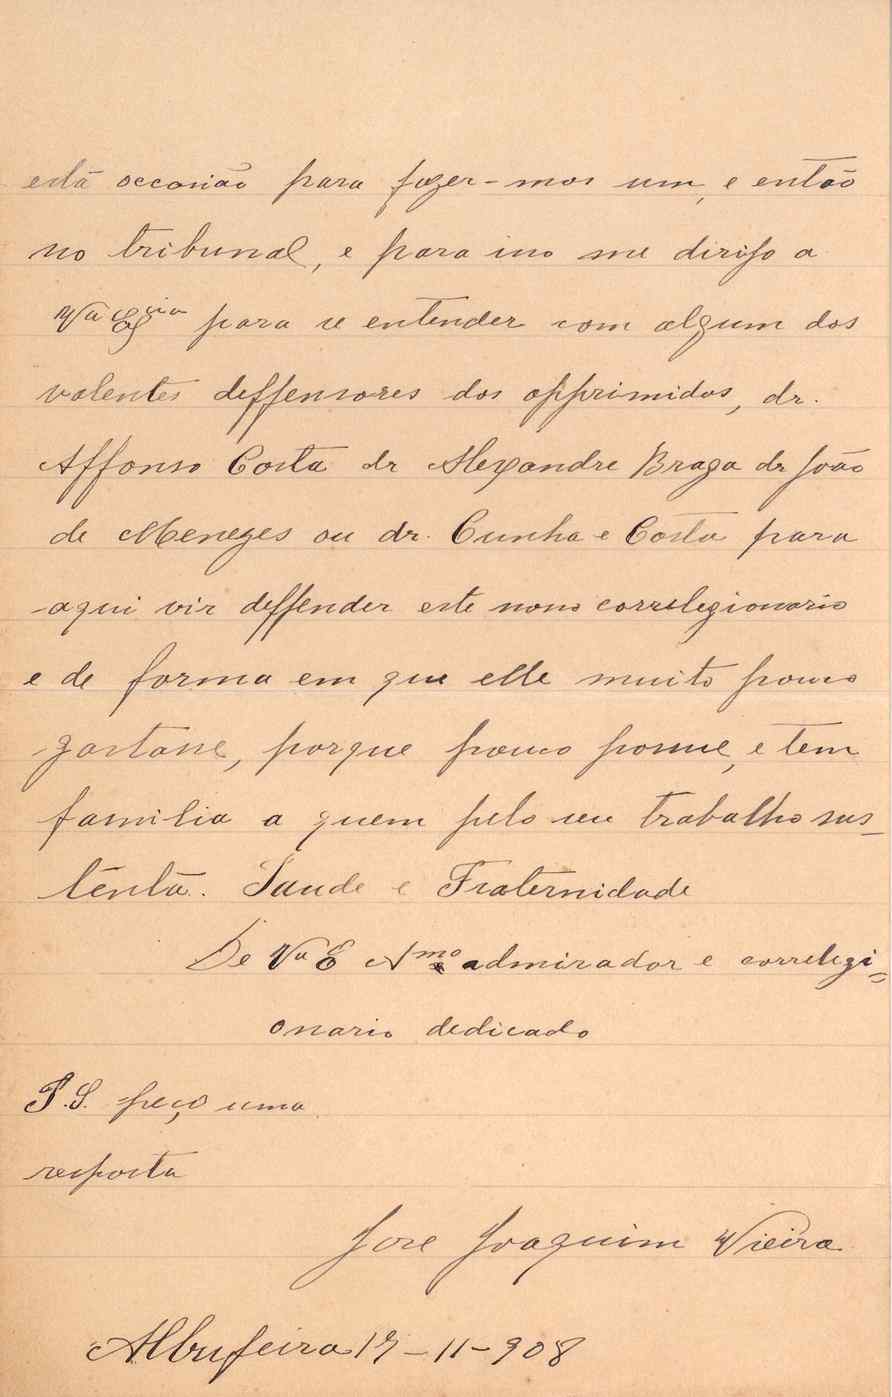 está occasião para fazer-mos um, e então
no tribunal, e para isso me dirijo a
Vª Exᶜⁱᵃ para se entender com algum dos
valentes deffensores dos opprimidos, dr.
Affonso Costa dr Alexandre Braga dr João
de Menezes ou dr. Cunha e Costa para
aqui vir deffender este nosso correlegionario
e de forma em que elle muito pouco
gastasse, porque pouco possue, e tem
familia a quem pelo seu trabalho sus-
tenta. Saude e Fraternidade
De Vª E Aᵐᵒ admirador e correlegi=
onario dedicado
P.S. peço uma
resposta
José Joaquim Vieira
Albufeira -11-908